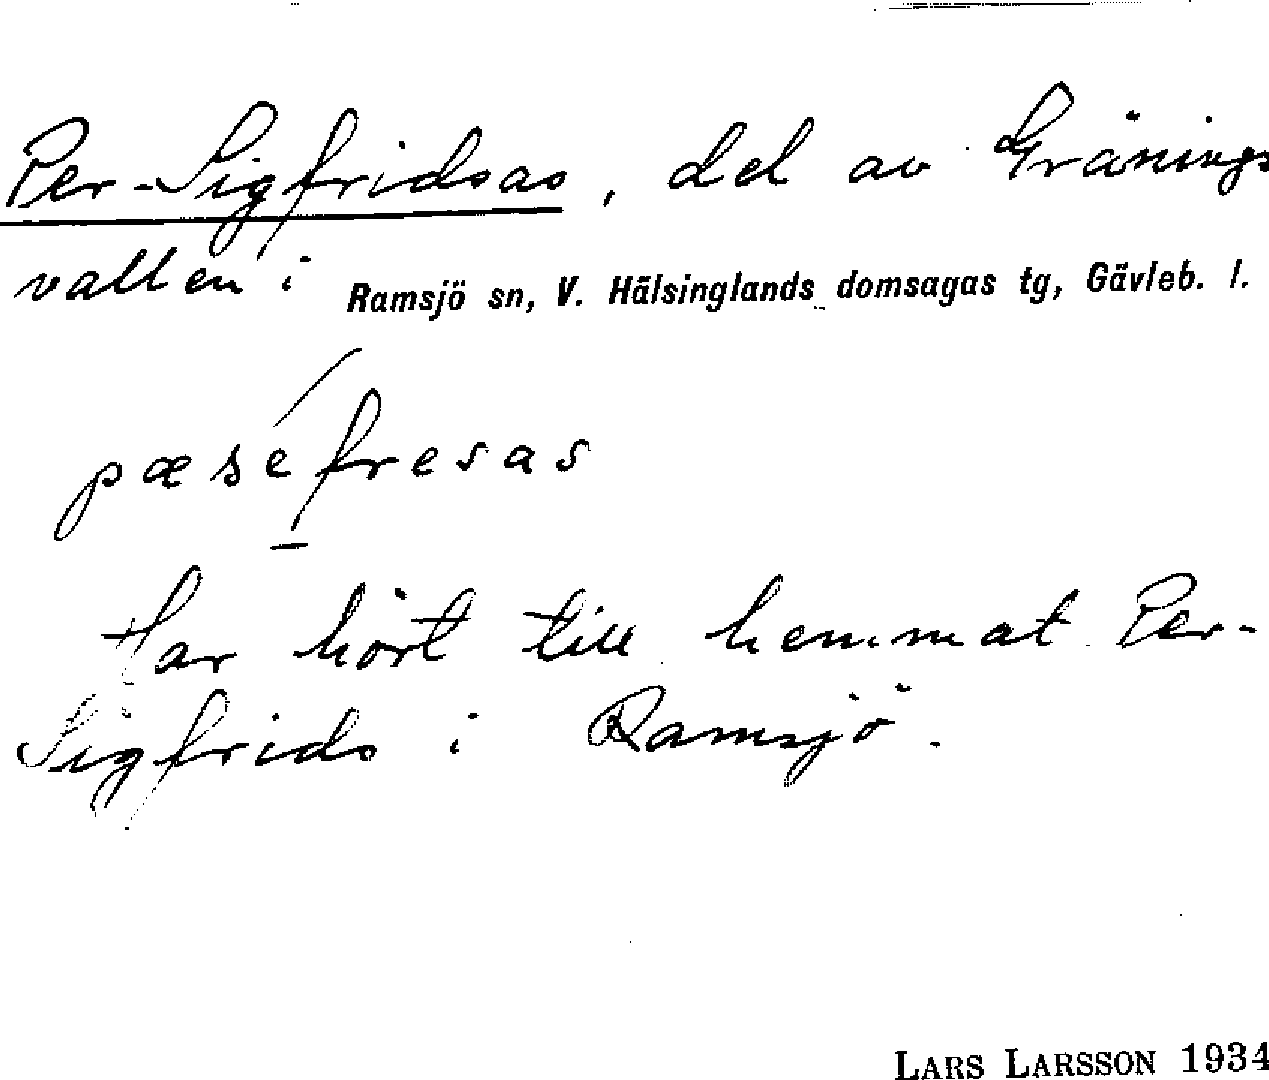 Per-Sigfridsas, del av Gränings
vallen i Ramsjö sn, V. Hälsinglands domsagas tg, Gävleb. l.
pæséfresas
Har hört till hemmat Per-
Sigfrids i Ramsjö.
LARS LARSSON 1934